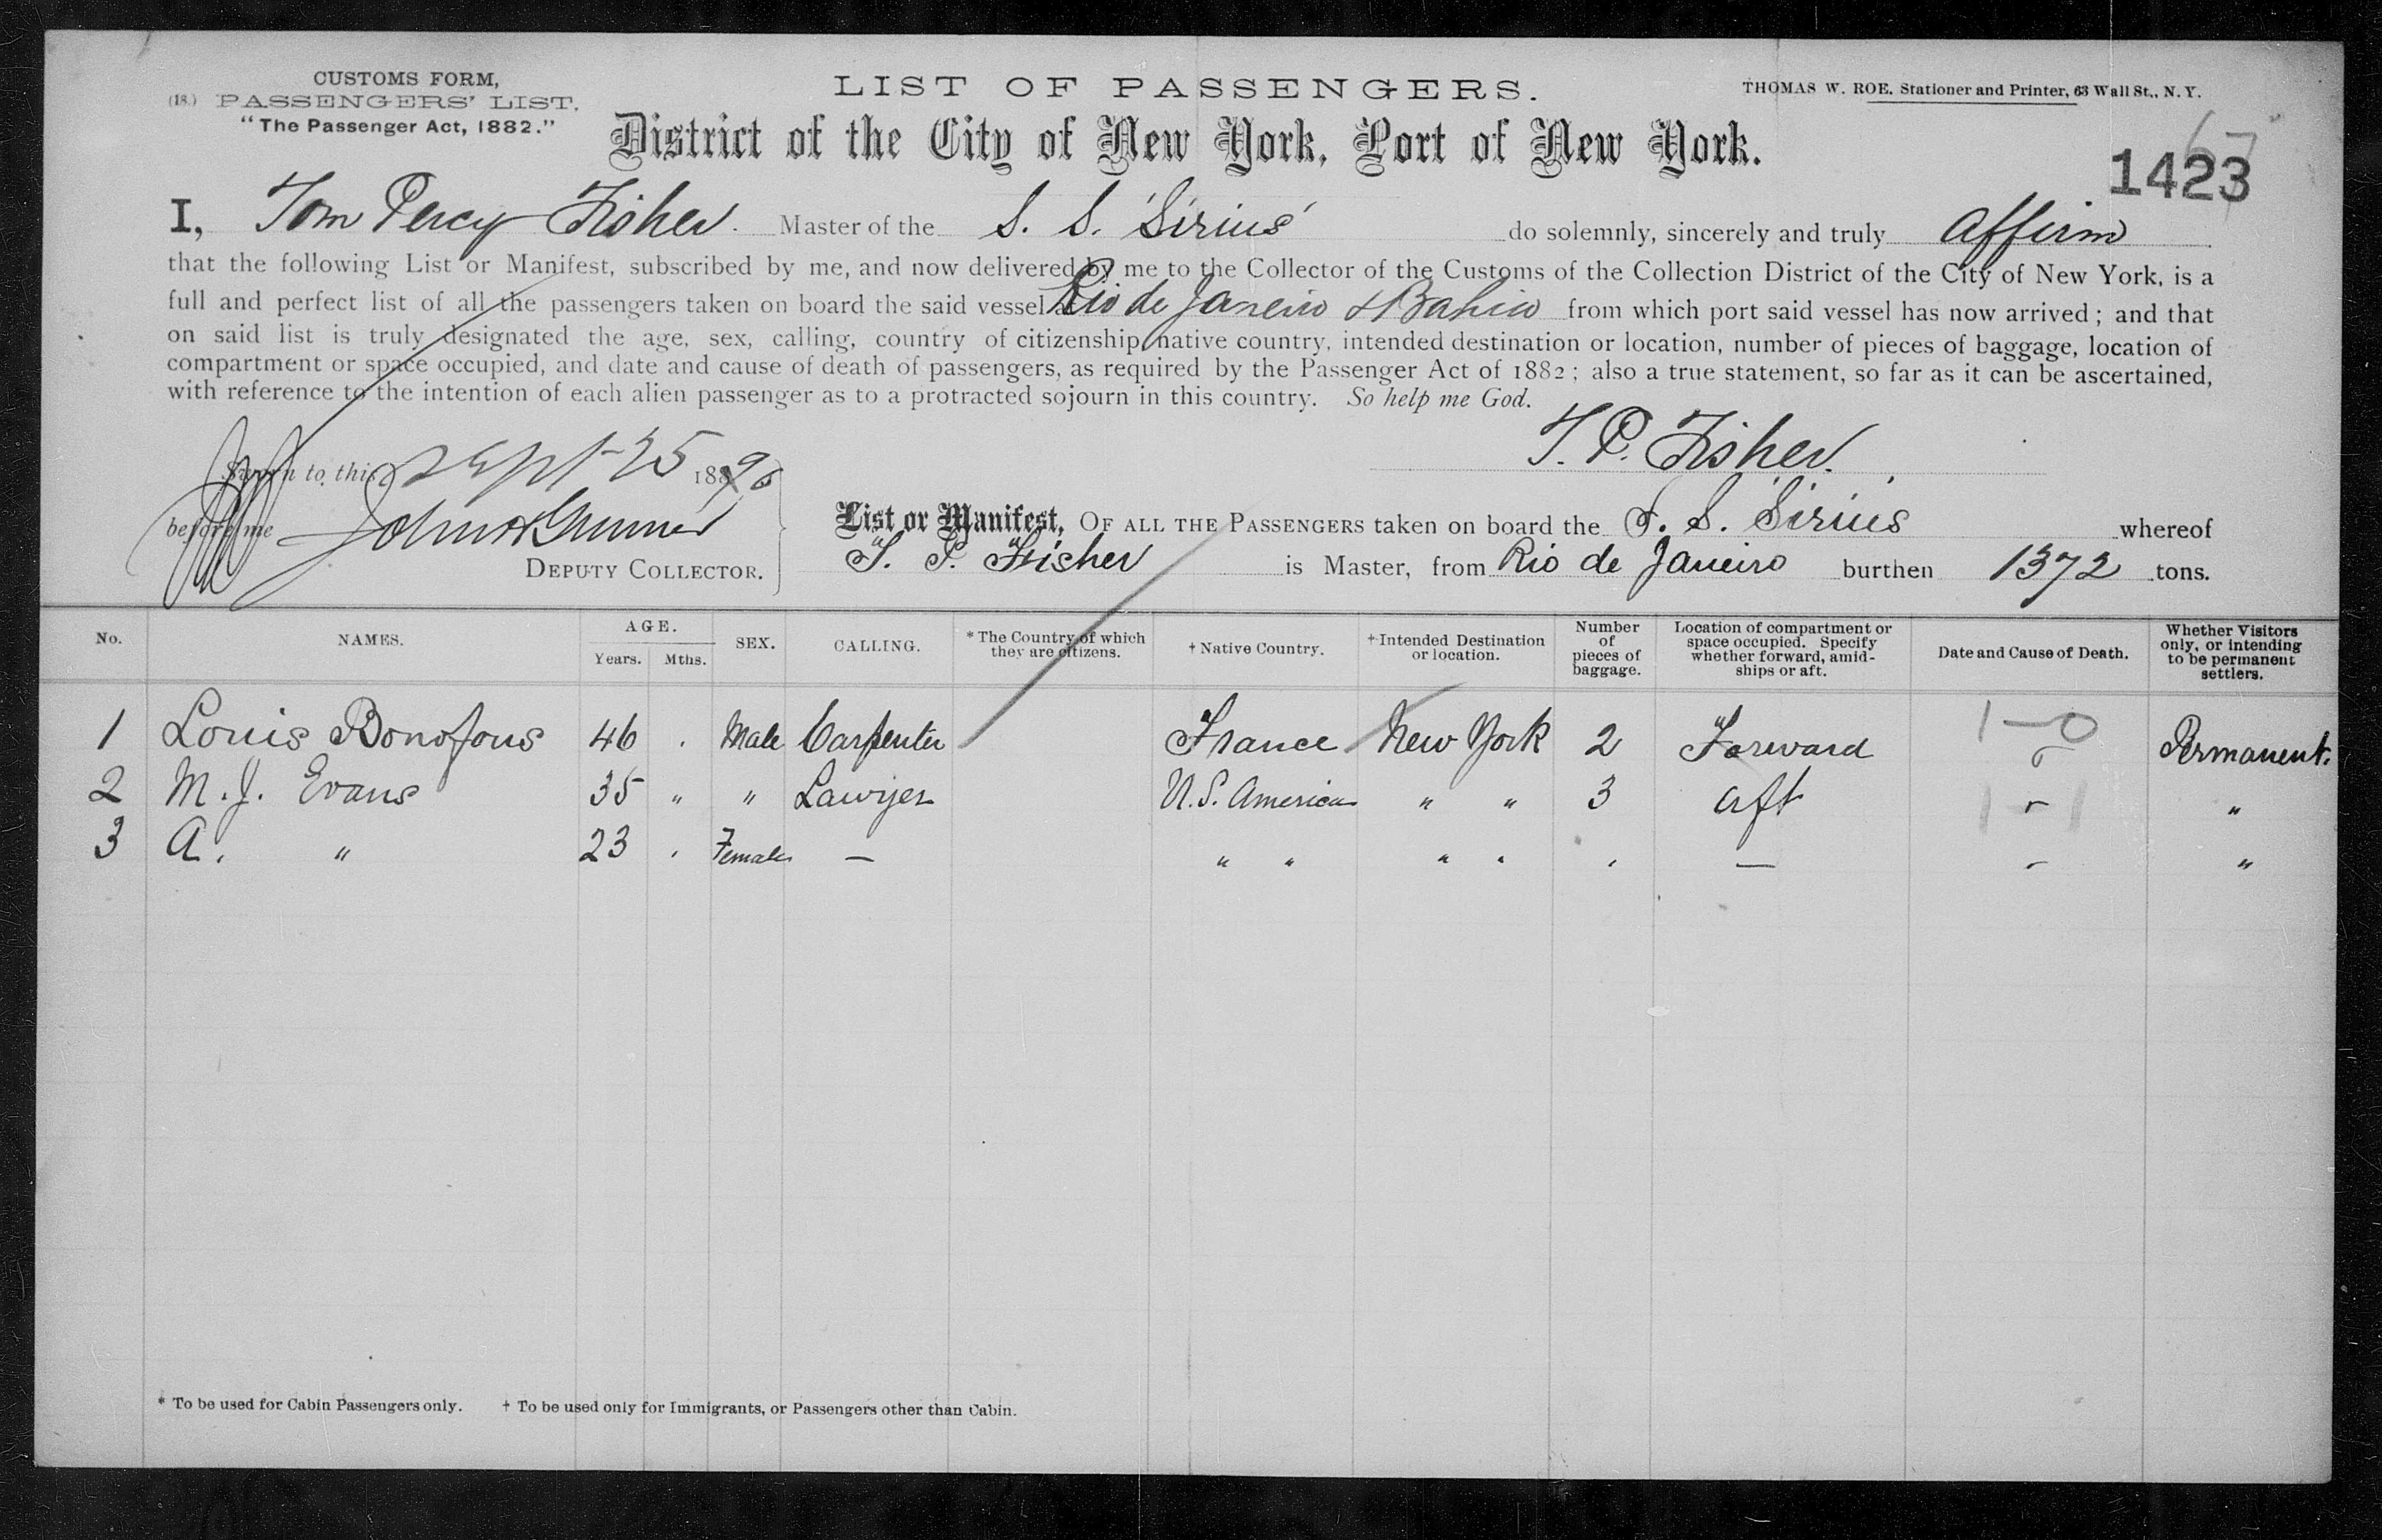 CUSTOMS FORM,
(18.) PASSENGERS' LIST.
"The Passenger Act, 1882."
LIST OF PASSENGERS.
THOMAS W. ROE, Stationer and Printer, 63 Wall St., N.Y.
District of the City of New York, Port of New York.
67
1423
I, Tom Percy Fisher. Master of the S. S. 'Sirius' do solemnly, sincerely and truly affirm
that the following List or Manifest, subscribed by me, and now delivered by me to the Collector of the Customs of the Collection District of the City of New York, is a
full and perfect list of all the passengers taken on board the said vessel at Rio de Janeiro & Bahia from which port said vessel has now arrived; and that
on said list is truly designated the age, sex, calling, country of citizenship, native country, intended destination or location, number of pieces of baggage, location of
compartment or space occupied, and date and cause of death of passengers, as required by the Passenger Act of 1882; also a true statement, so far as it can be ascertained,
with reference to the intention of each alien passenger as to a protracted sojourn in this country. So help me God.
T. P. Fisher.
Sworn to this Sept 25 1890
before me John
DEPUTY COLLECTOR.
List or Manifest, OF ALL THE PASSENGERS taken on board the S. S. Sirius whereof
T. P. Fisher is Master, from Rio de Janeiro burthen 1372 tons.
No. NAMES. AGE. Years. Mths. SEX. CALLING. * The Country of which they are citizens. † Native Country. † Intended Destination or location. Number of pieces of baggage. Location of compartment or space occupied. Specify whether forward, amidships or aft. Date and Cause of Death. Whether Visitors only, or intending to be permanent settlers.
1 Louis Bonofous 46 Male Carpenter France New York 2 Forward 1-0 Permanent.
2 M. J. Evans 35 " " Lawyer U.S. America " " 3 aft 1-1 "
3 A. " 23 Female — " " " " — - "
* To be used for Cabin Passengers only. † To be used only for Immigrants, or Passengers other than Cabin.